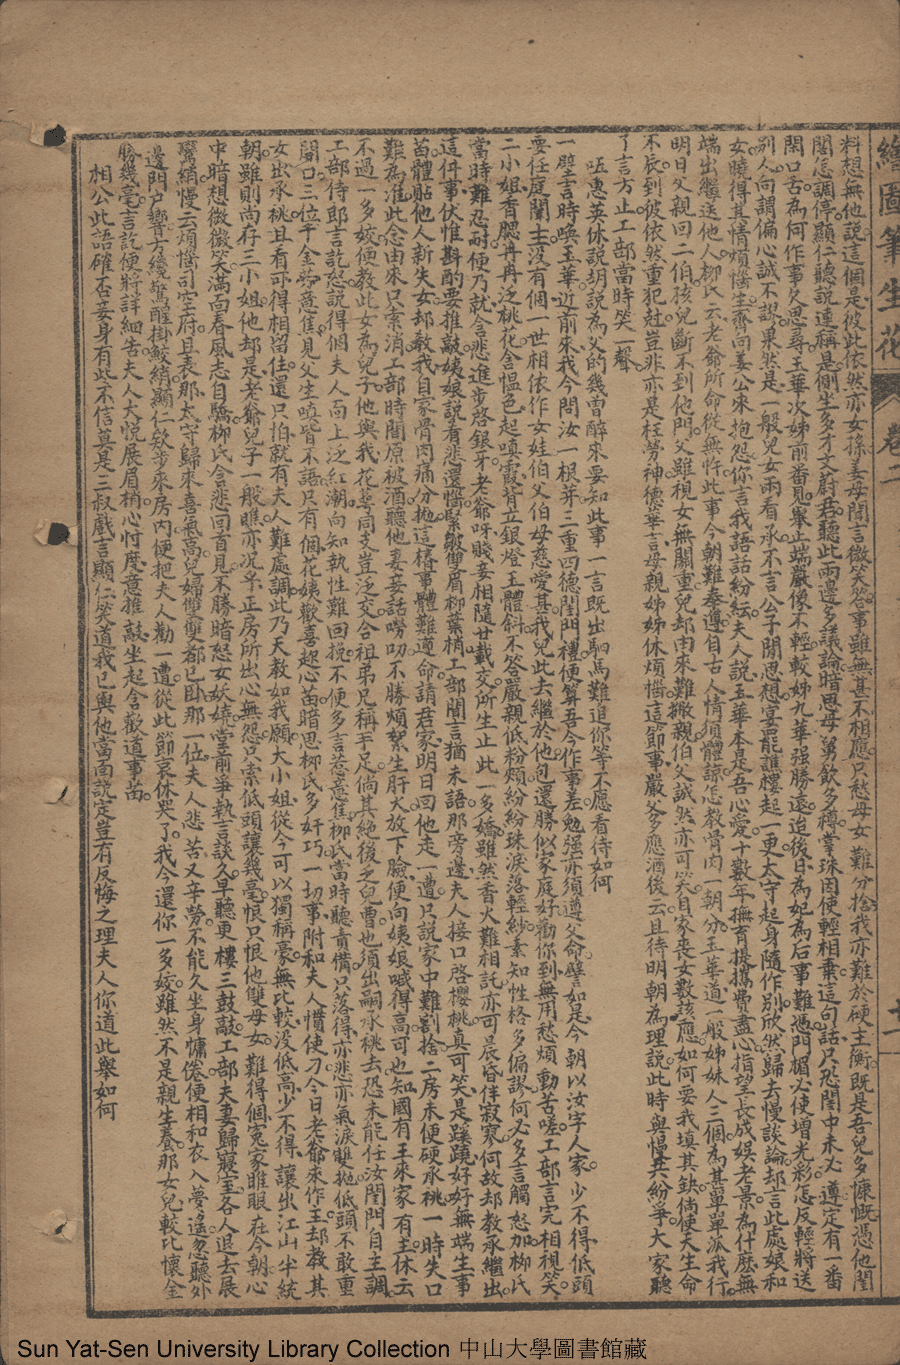 繪圖筆生花 卷二
料想無他說這個是彼此依然亦女孫姜母聞言微笑答事雖無甚不相應只愁母女難分捨我亦難於硬主衡既是吾兒多慷慨憑他閨
閣怎調停顯仁聽說連稱是側坐多才文蔚君聽此兩邊多議論暗思母舅飲多樽掌珠因使輕相棄這句話只恐閨中未必遵定有一番
閒口舌為何作事欠思尋玉華次姊前番見舉止端嚴像不輕較姊九華强勝遠迨後日為妃為后事難憑門楣必使增光彩怎反輕將送
別人向謂偏心誠不謬果然是一般兒女兩看承不言公子閒思想宴罷譙樓起一更太守起身隨作別欣然歸去慢談論却言此處娘和
女曉得其情煩惱生齊向姜公來抱怨你言我語話紛紜夫人說玉華本是吾心愛十數年撫育提攜費盡心指望長成娛老景為什麽無
端出繼送他人柳氏云老爺所命從無忤此事今朝難奉遵自古人情須體諒怎教骨肉一朝分玉華道一般姊妹人三個為甚單單派我行
明日父親回二伯孩兒斷不到他門父雖視女無關重兒却由來難撇親伯父誠然亦可笑自家喪女數該應如何要我填其缺倘使天生命
不辰到彼依然重犯尅豈非亦是枉勞神德華言母親姊姊休煩惱這節事嚴父多應酒後云且待明朝為理說此時與惱甚紛爭大家聽
了言方止工部當時笑一聲
咄惠英休說胡說為父的幾曾醉來要知此事一言既出駟馬難追你等不應看待如何
一壁言時喚玉華近前來我今問汝一根芽三重四德閨門禮便算吾今作事差勉强亦須遵父命譬如是今朝以汝字人家少不得低頭
要任庭闈主沒有個一世相依作女娃伯父伯母慈愛甚我兒此去繼於他包還勝似家庭好勸你到無用愁煩動苦嗟工部言完相視笑
二小姐香腮冉冉泛桃花含愠色起嗔霞背立銀燈玉體斜不答嚴親低粉頰紛紛珠淚落輕紗素知性格多偏謬何必多言觸怒加柳氏
當時難忍耐便乃就含悲進步啓銀牙老爺呀賤妾相隨廿載交所生止此一多嬌雖然香火難相託亦可晨昏伴寂寥何故却教承繼出
這件事伏惟斟酌要推敲姨娘說着悲還惱緊皺雙眉柳葉梢工部聞言猶未語那旁邊夫人接口啓櫻桃真可笑是蹊蹺好好無端生事
苗體貼他人新失女却教我自家骨肉痛分拋這樁事體難遵命請君家明日回他走一遭只說家中難割捨二房未便硬承桃一時失口
難為准此念由來只索消工部時間原被酒聽他妻妾話嘮叨不勝煩絮生肝火放下臉便向姨娘喊得高可也知國有王來家有主休云
不過一多姣便教此女為兒子他與我花萼同支豈泛交合祖弟兄稱手足倘其絕後乏兒曹也須出嗣承桃去恐未能任汝閨門自主調
工部侍郎言訖怒說得個夫人向上泛紅潮向知執性難回挽不便多言惹意焦柳氏當時聽責備只落得亦悲亦氣淚雙拋低頭不敢重
開口三位千金愁意焦見父生嗔皆不語只有個花姨歡喜趂心苗暗思柳氏多奸巧一切事附和夫人慣使刁今日老爺來作主却教其
女出承桃且看可得相留住還只怕就有夫人難處調此乃天教如我願大小姐從今可以獨稱豪無比較没低高少不得讓出江山半統
朝雖則尚存三小姐他却是老爺兒子一般瞧亦况乎正房所出心無怨只索低頭讓幾毫恨只恨他雙母女難得個冤家睢眼在今朝心
中暗想微微笑滿面春風志自驕柳氏含悲回首見不勝暗怒女妖嬈堂前爭執言談久早聽更樓三鼓敲工部夫妻歸寢室各人退去展
鸞綃慢云煩惱司空府且表那太守歸來喜氣高兒婦雙雙都已臥那一位夫人悲苦又辛勞不能久坐身慵倦便相和衣入夢遙忽聽外
邊門戶響方纔驚醒掛鮫綃顯仁欵步來房內便把夫人勸一遭從此節哀休哭了我今還你一多姣雖然不是親生養那女兒較比懷全
勝幾毫言訖便將詳細告夫人大悅展眉梢心忖度意推敲坐起含歡道事苗
相公此語確否妾身有些不信莫是三叔戲言顯仁笑道我已與他當面說定豈有反悔之理夫人你道此舉如何
十一
Sun Yat-Sen University Library Collection 中山大學圖書館藏